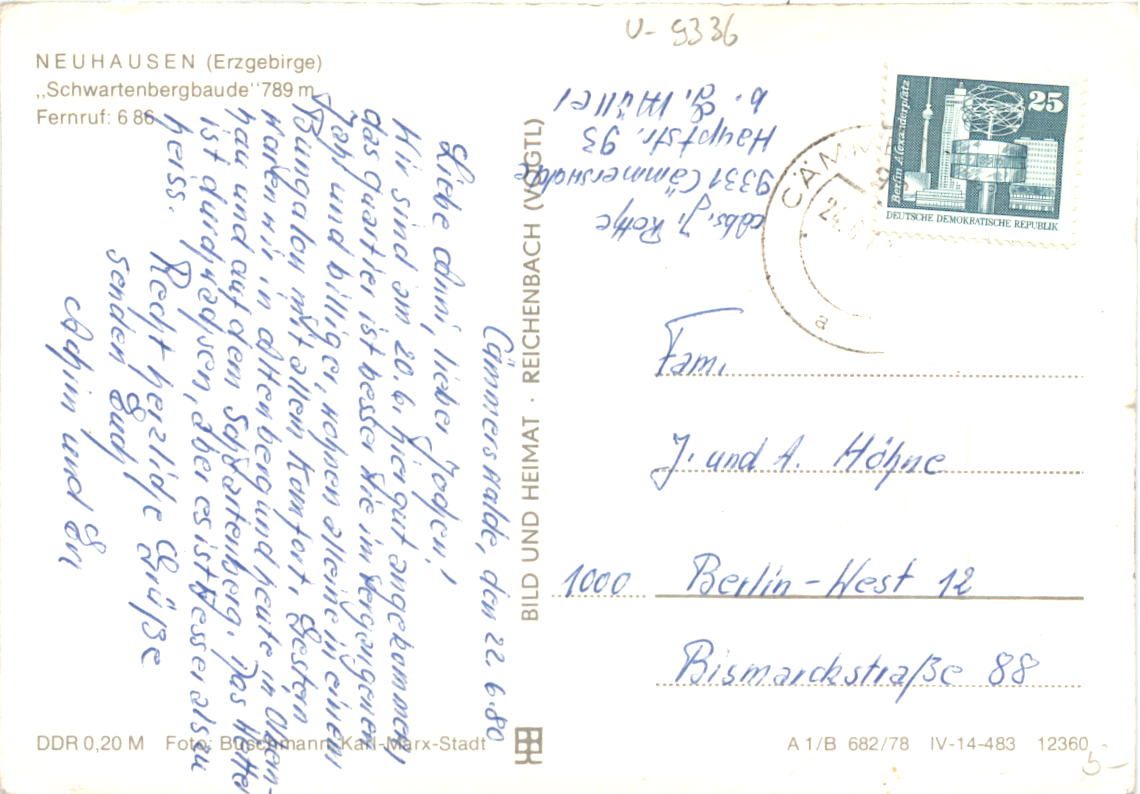 U-9336
NEUHAUSEN (Erzgebirge)
„Schwartenbergbaude" 789 m
Fernruf: 6 86
Cämmerswalde, den 22. 6. 80
Liebe Anni, lieber Jochen!
Wir sind am 20. 6. hier gut angekommen,
das Quartier ist besser wie im vergangenen
Jahr und billiger, wohnen alleine in einem
Bungalow mit allem Komfort. Gestern
waren wir in Altenberg und heute in Olbern-
hau und auf dem Schwartenberg. Das Wetter
ist durchwachsen, aber es ist besser als zu
heiss. Recht herzliche Grüße
senden Euch
Achim und
BILD UND HEIMAT · REICHENBACH (VOGTL)
Abs. J.
9331 Cämmerswalde
Hauptstr. 93
b. G. Müller
25
Berlin Alexanderplatz
DEUTSCHE DEMOKRATISCHE REPUBLIK
CÄMM
24
a
Fam.
J. und A. Höhne
1000 Berlin-West 12
Bismarckstraße 88
DDR 0,20 M Foto: Buschmann, Karl-Marx-Stadt
A 1/B 682/78 IV-14-483 12360
5,-